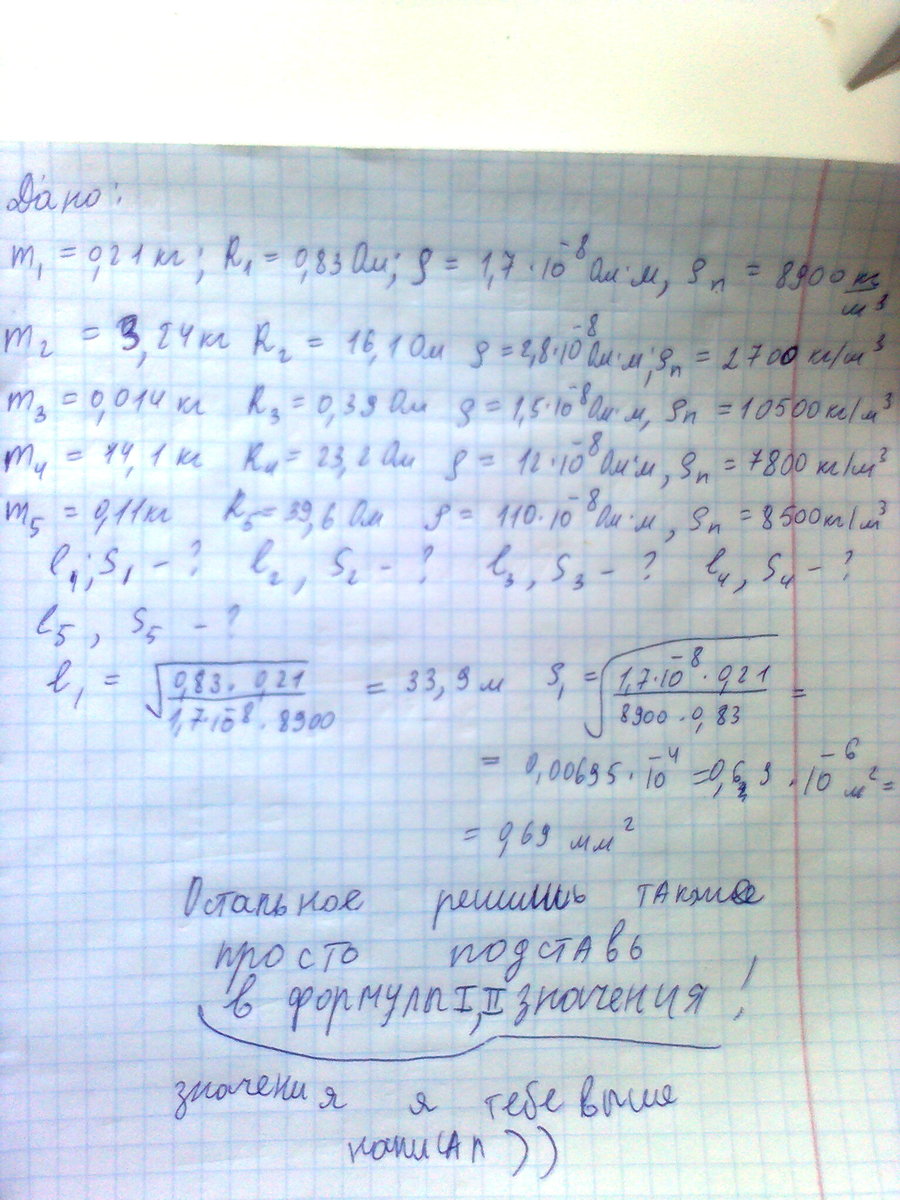 Дано:
m₁ = 0,21 кг; R₁ = 0,83 Ом; ρ = 1,7·10⁻⁸ Ом·м, ρп = 8900 кг/м³
m₂ = 3,24 кг R₂ = 16,1 Ом ρ = 2,8·10⁻⁸ Ом·м; ρп = 2700 кг/м³
m₃ = 0,014 кг R₃ = 0,39 Ом ρ = 1,5·10⁻⁸ Ом·м, ρп = 10500 кг/м³
m₄ = 14,1 кг R₄ = 23,2 Ом ρ = 12·10⁻⁸ Ом·м, ρп = 7800 кг/м³
m₅ = 0,11 кг R₅ = 39,6 Ом ρ = 110·10⁻⁸ Ом·м, ρп = 8500 кг/м³
l₁; S₁ - ? l₂, S₂ - ? l₃, S₃ - ? l₄, S₄ - ?
l₅, S₅ - ?
l₁ = √(0,83·0,21 / 1,7·10⁻⁸·8900) = 33,9 м S₁ = √(1,7·10⁻⁸·0,21 / 8900·0,83) =
= 0,00695·10⁻⁴ = 0,69·10⁻⁶ м² =
= 0,69 мм²
Остальное решишь также
просто подставь
в формулы I, II значения!
значения я тебе выше
написал ))